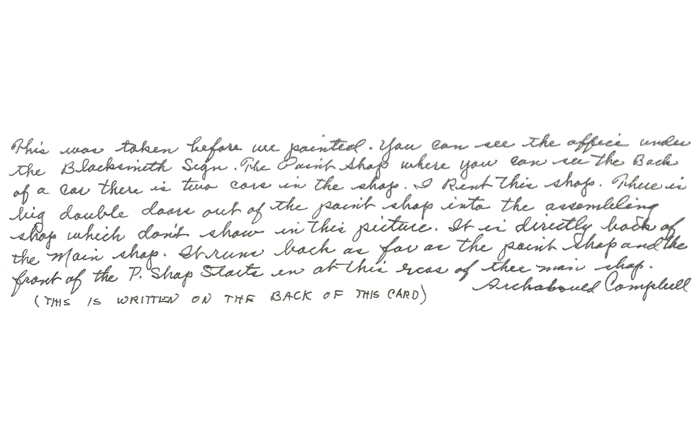 This was taken before we painted. You can see the office under
the Blacksmith Sign. The Paint Shop where you can see the Back
of a car there is two cars in the shop. I Rent this shop. There is
big double doors out of the paint shop into the assembling
shop which don't show in this picture. It is directly back of
the main shop. It runs back as far as the paint shop and the
front of the P. Shop Starts in at this rear of thee main shop.
Archabould Campbell
(THIS IS WRITTEN ON THE BACK OF THIS CARD)